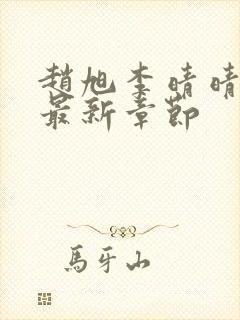 趙旭李晴晴
最新章節
馬牙山